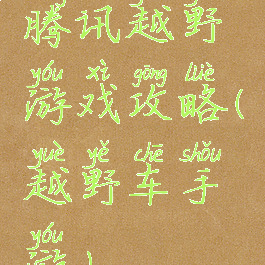 腾讯越野
yóu xì gōng lüè
游戏攻略(
yuè yě chē shǒu
越野车手
yóu
游)